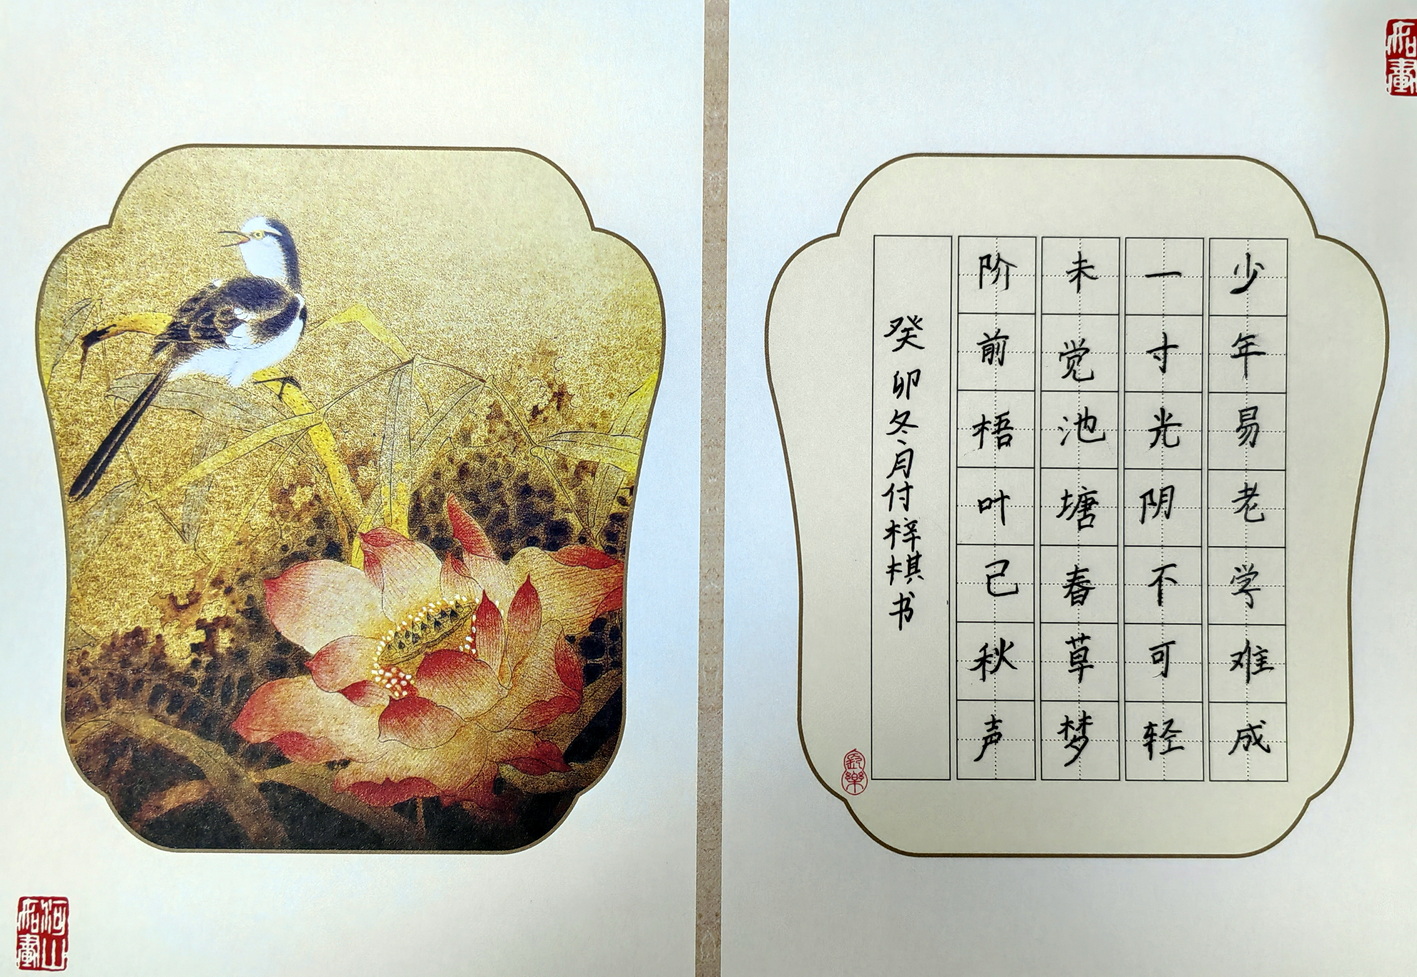 少年易老学难成
一寸光阴不可轻
未觉池塘春草梦
阶前梧叶己秋声
癸卯冬月付梓棋书
河山
如画
如画